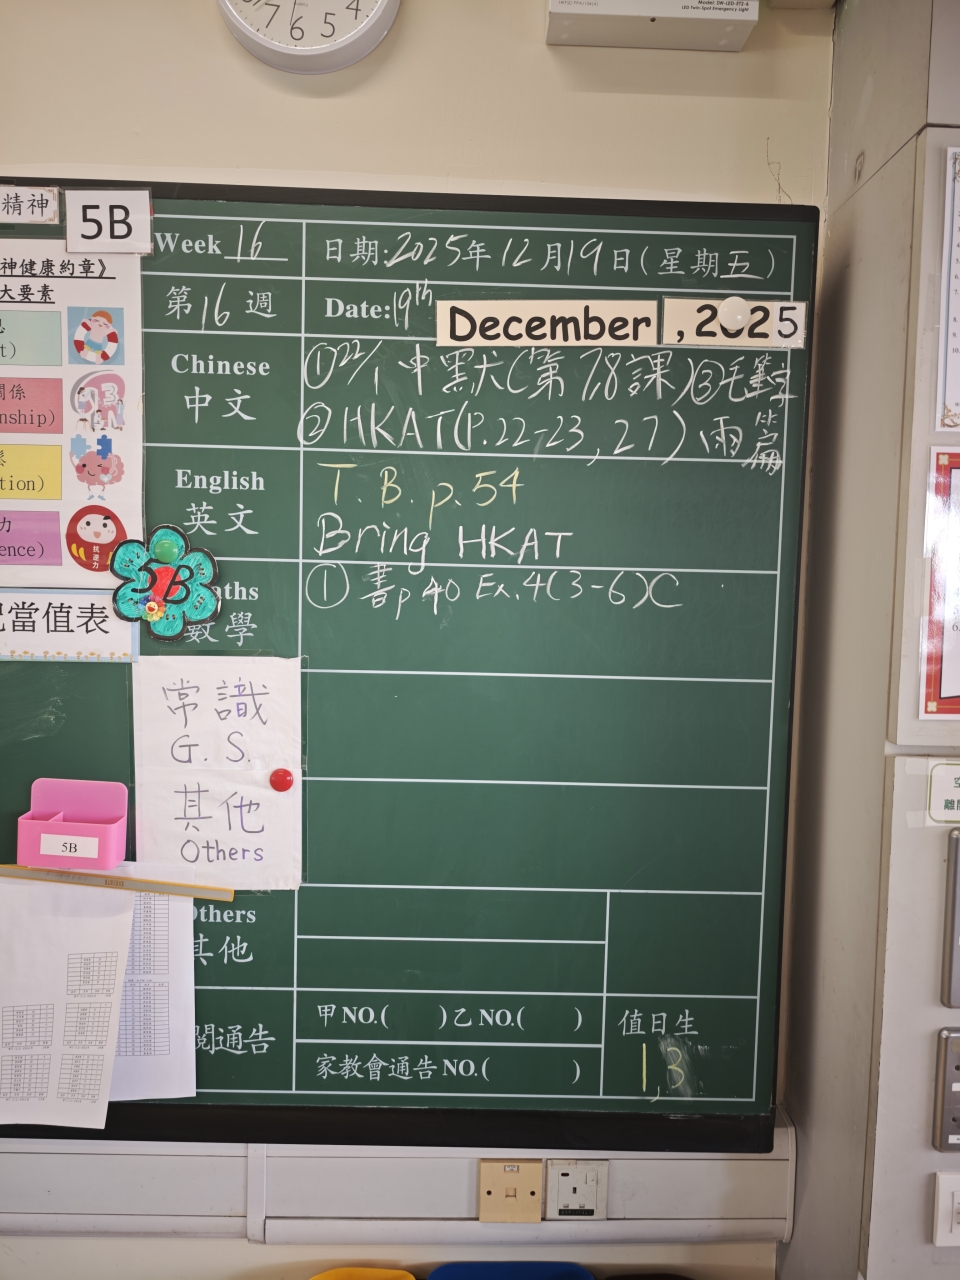 7 6 5 4
Model: SW-LED-3T2-6
LED Twin-Spot Emergency Light
精神
5B
神健康約章》
大要素
t)
關係
nship)
tion)
力
ence)
抗逆力
5B
當值表
Week 16
日期:2025年12月19日(星期五)
第16週
Date:19th December , 2025
Chinese
中文
①22/1 中默(第7,8課)③毛筆字
②HKAT(P.22-23, 27) 兩篇
English
英文
T. B. p. 54
Bring HKAT
aths
數學
① 書p40 Ex.4(3-6)C
常識
G. S.
其他
Others
5B
Others
其他
閱通告
甲 NO.( ) 乙 NO.( )
家教會通告 NO.( )
值日生
1, 3